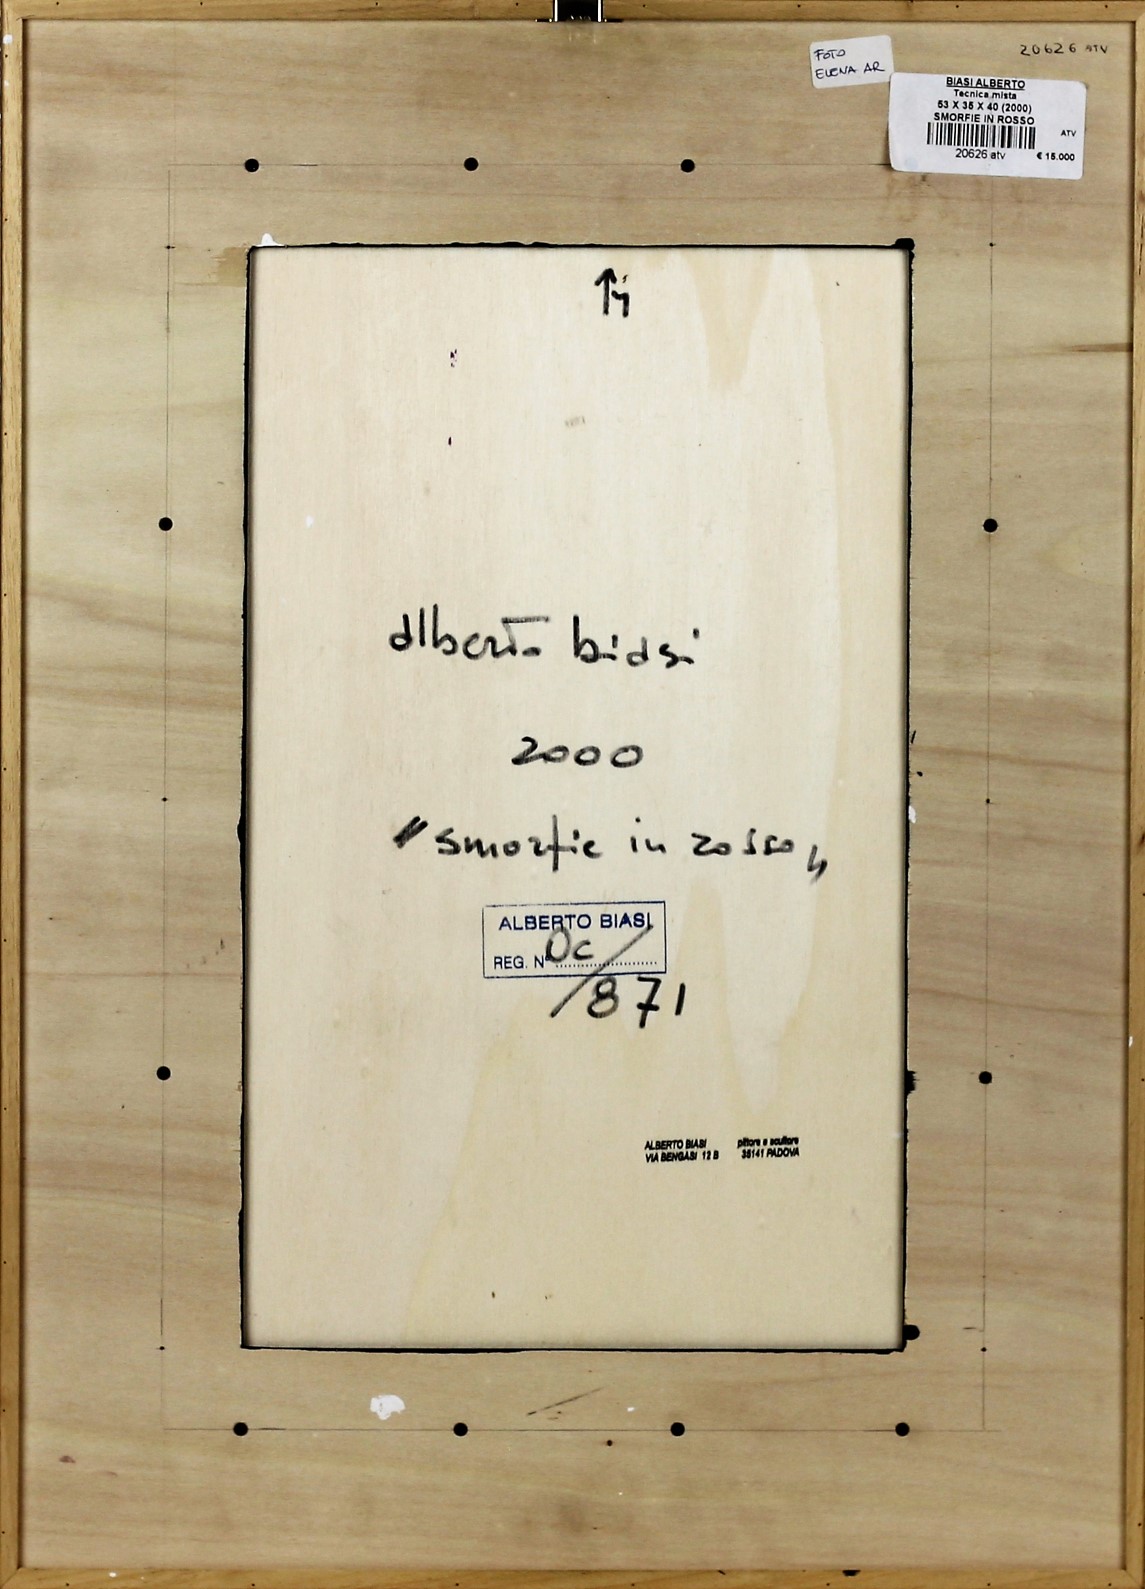 20626 ATV
FOTO
ELENA AR
BIASI ALBERTO
Tecnica mista
53 X 35 X 40 (2000)
SMORFIE IN ROSSO
ATV
20626 atv € 15.000
alberto biasi
2000
"smorfie in rosso"
ALBERTO BIASI
REG. N° Oc/871
ALBERTO BIASI pittore e scultore
VIA BENGASI 12 B 35141 PADOVA